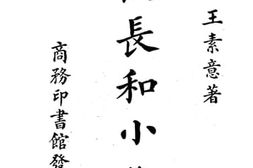 王素意著
長和小
商務印書館發